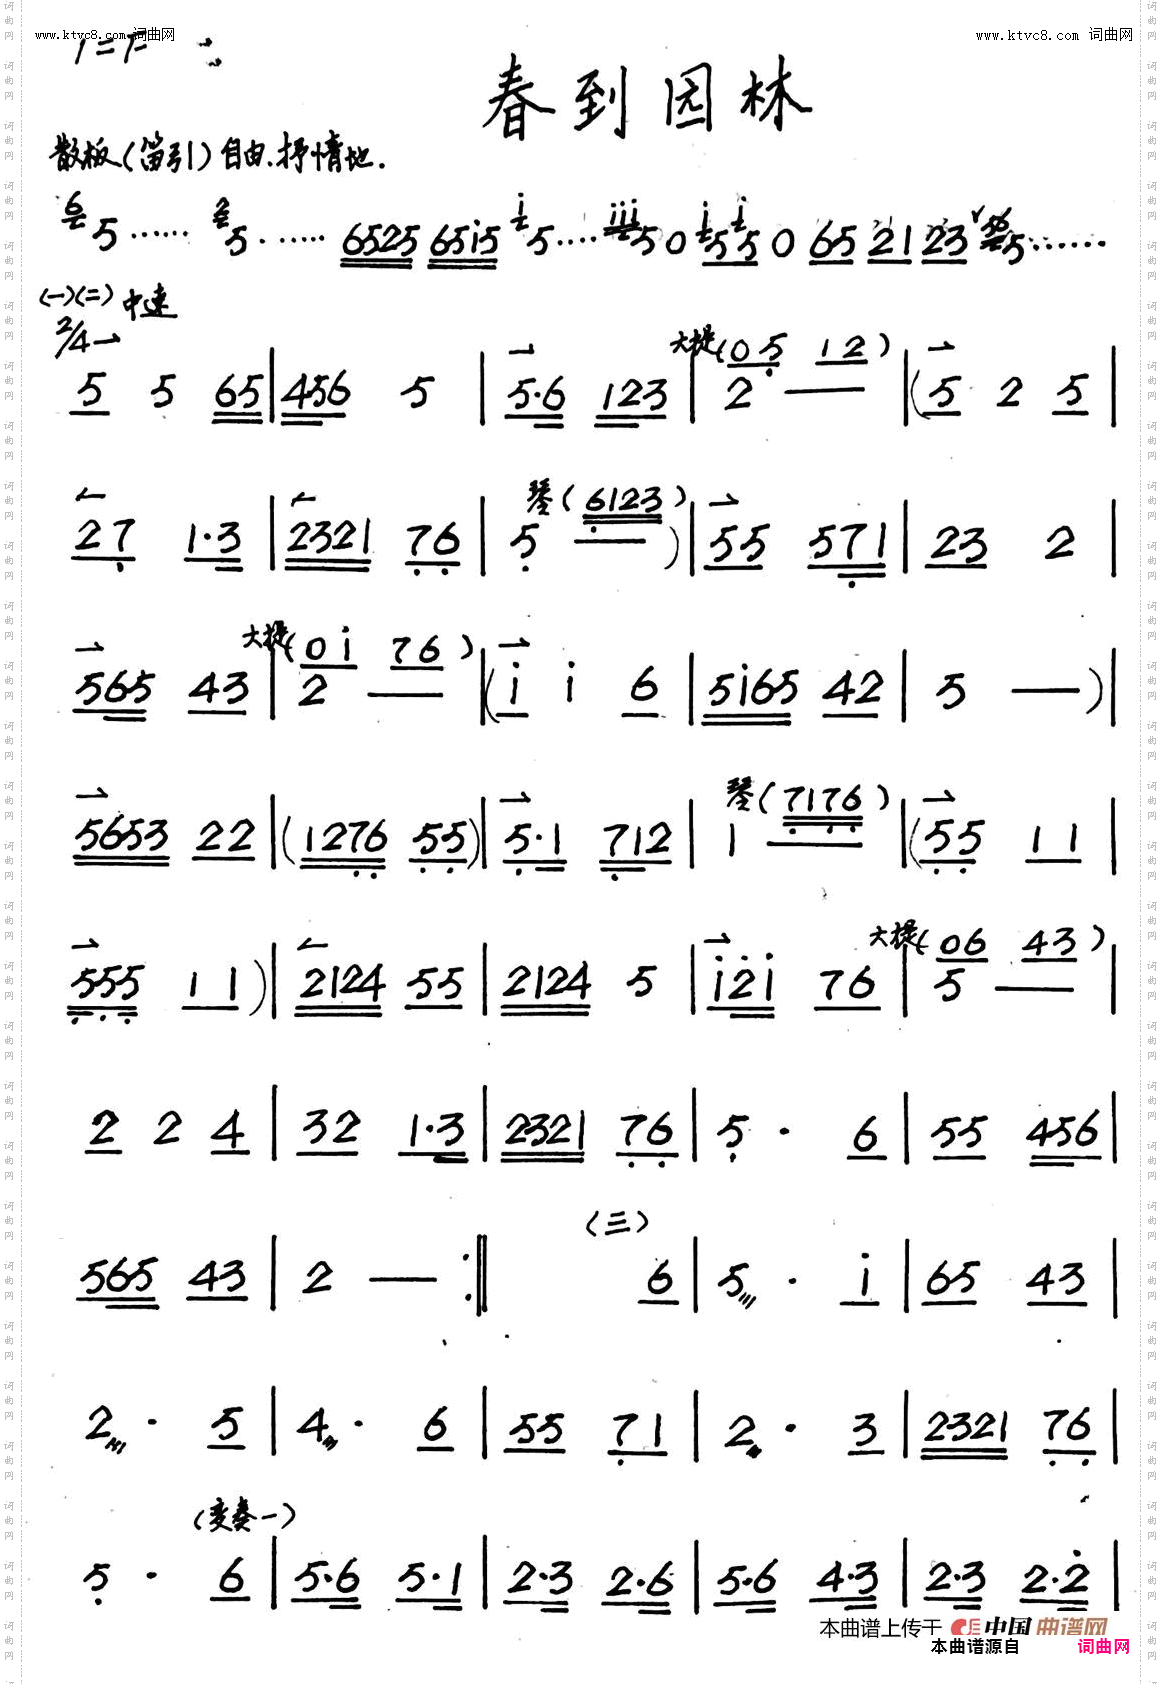 www.ktvc8.com 词曲网
www.ktvc8.com 词曲网
1=F
春到园林
散板(笛引)自由.抒情地.
6 5······ 2 5······ 6525 65i5 i 5···· iii 5 0 i 5 i 5 0 65 21 23 56 5·······
(一)(二) 中速
2/4
5 5 65 | 456 5 | 5·6 123 | 大提(05 12) 2 — | (5 2 5 |
27 1·3 | 2321 76 | 5 琴(6123) —) | 55 571 | 23 2 |
565 43 | 大提(0i 76) 2 — | (i i 6 | 5i65 42 | 5 —) |
5653 22 | (1276 55) | 5·1 712 | 1 琴(7176) — | (55 11 |
555 11) | 2124 55 | 2124 5 | i2i 76 | 大提(06 43) 5 — |
2 2 4 | 32 1·3 | 2321 76 | 5· 6 | 55 456 |
565 43 | 2 — :|| (三) 6 | 5· i | 65 43 |
2· 5 | 4· 6 | 55 71 | 2· 3 | 2321 76 |
5· (变奏一) 6 | 5·6 5·1 | 2·3 2·6 | 5·6 4·3 | 2·3 2·2 |
本曲谱上传于 中国曲谱网
本曲谱源自 词曲网